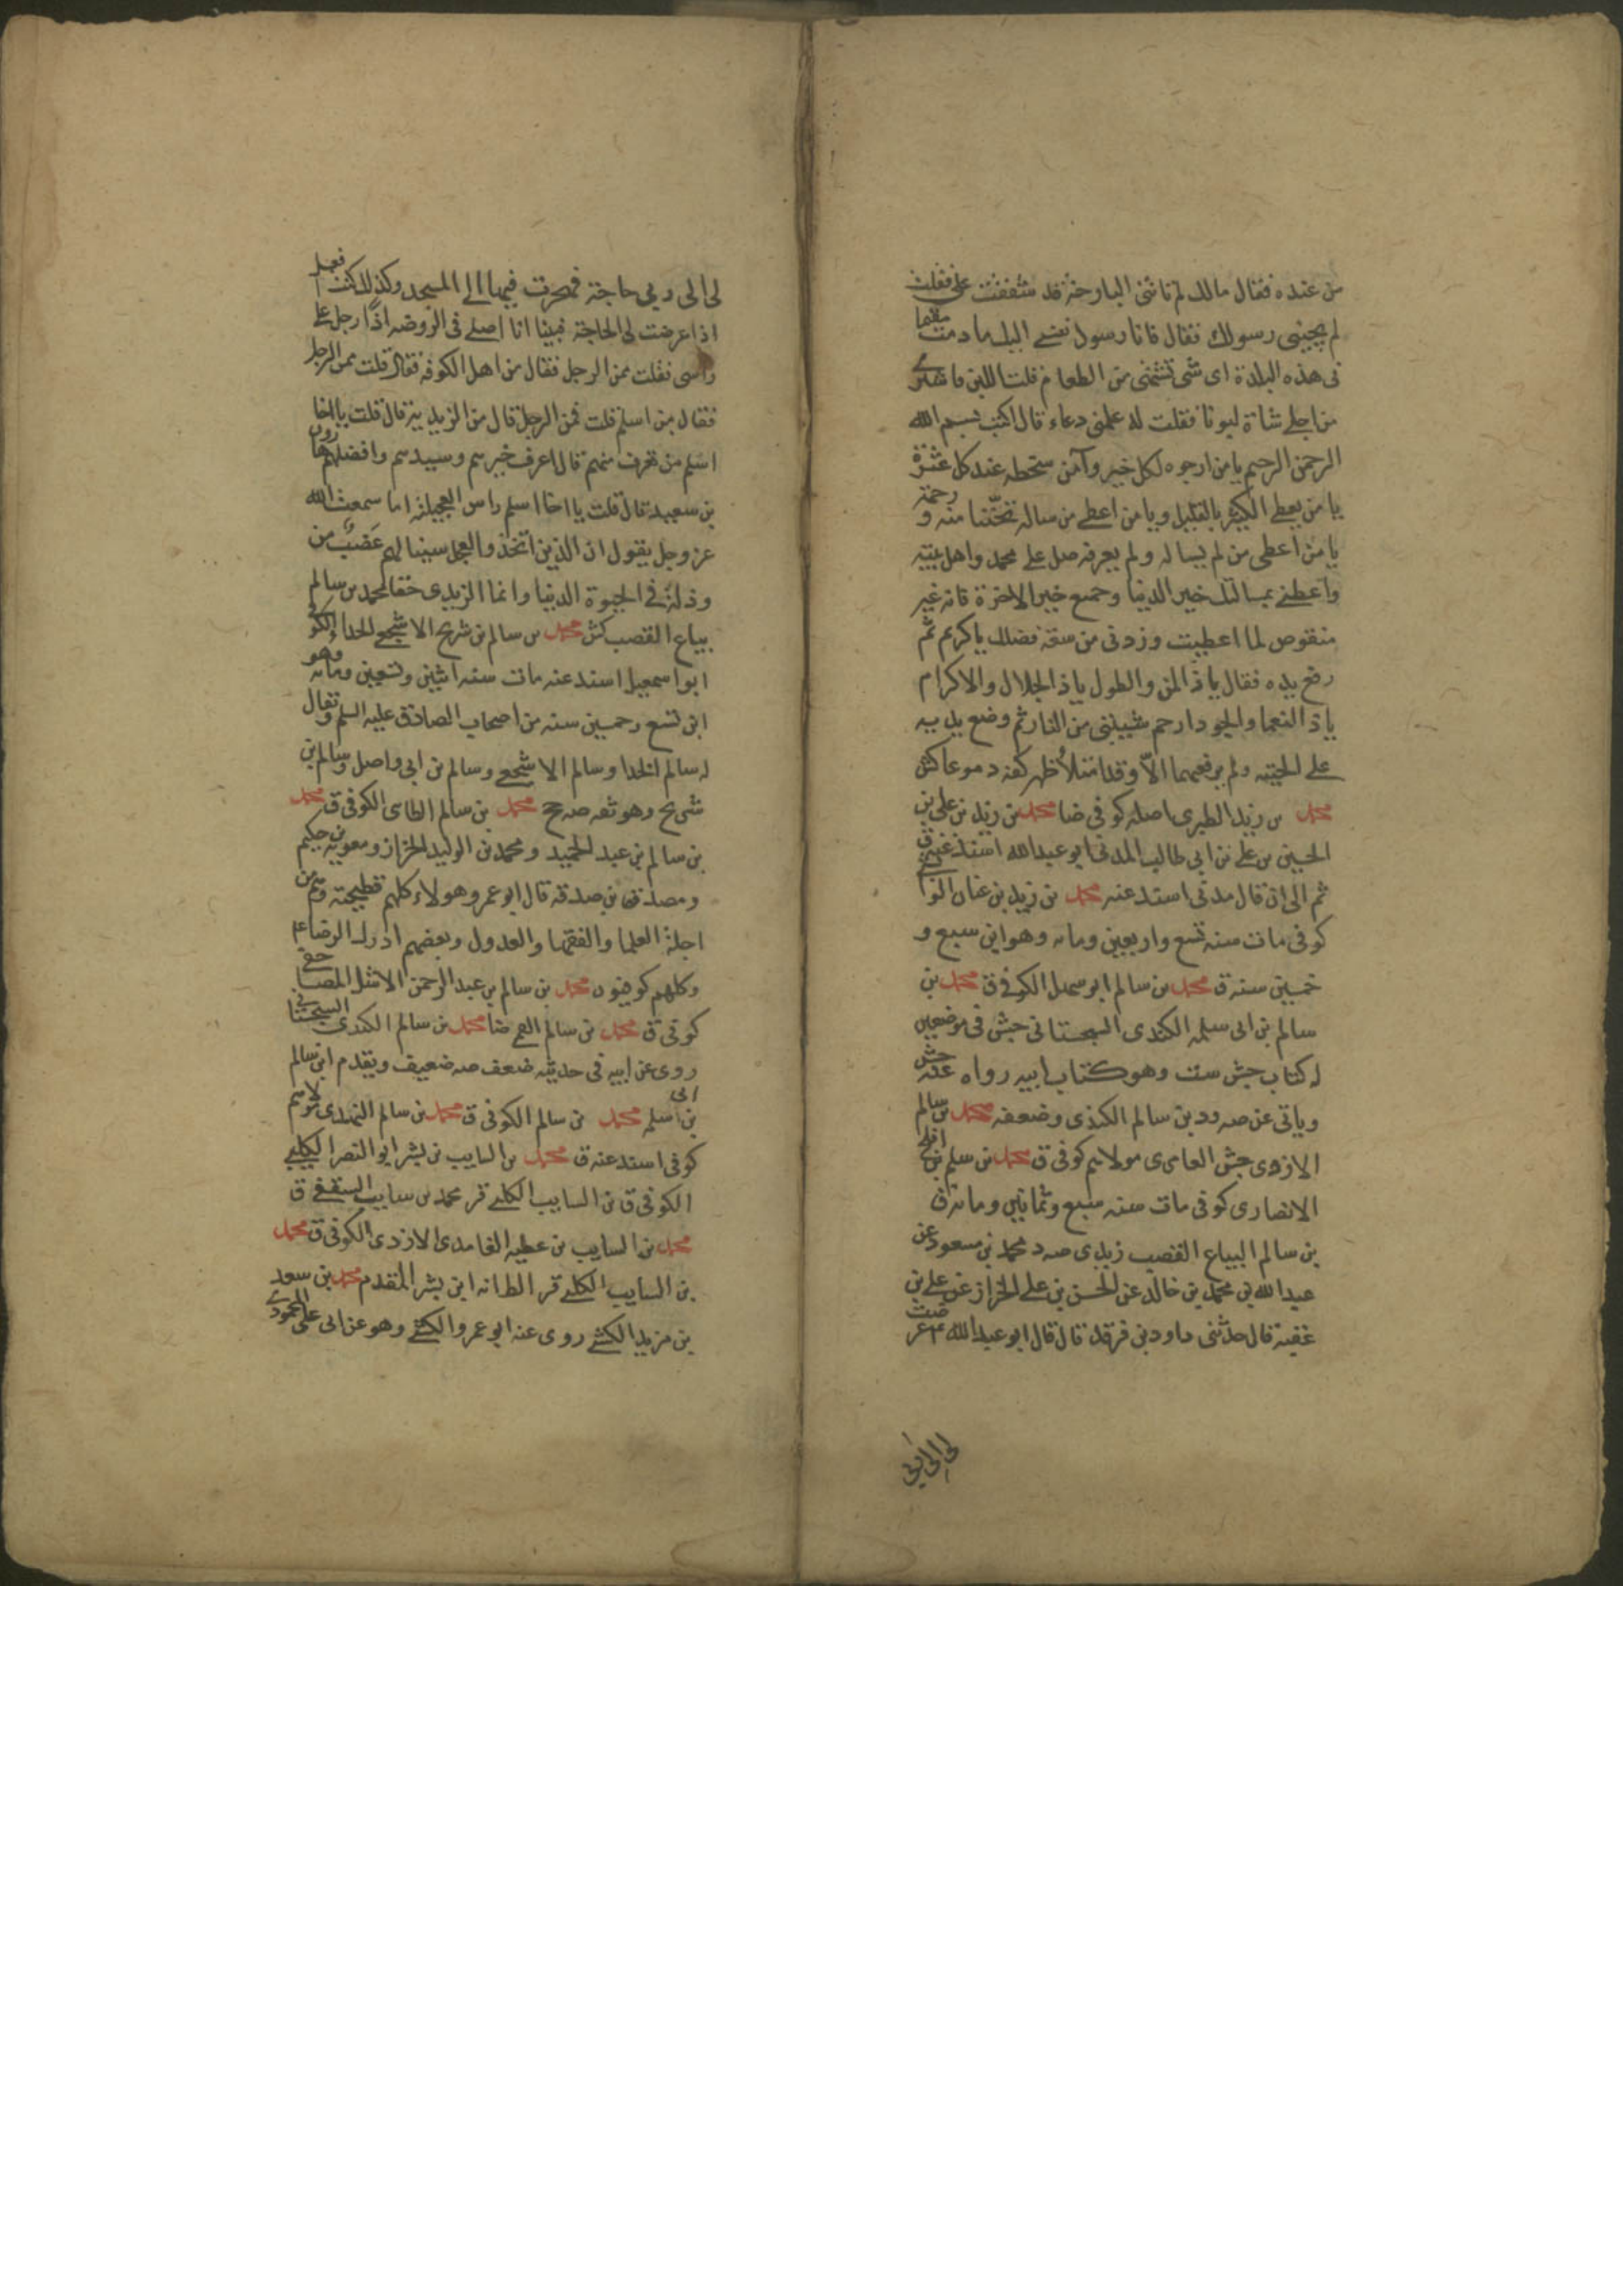 من عنده فقال مالك لم تاتنى البارحة قد شفقت على فقلت
لم يجيئنى رسولك فقال فانا رسول نفسى اليك ما دمت مقيما
فى هذه البلدة اى شى تشتهى من الطعام قلت اللبن فاشترى
من اجلى شاة لبونا فقلت له علمنى دعاء قال اكتب بسم الله
الرحمن الرحيم يا من ارجوه لكل خير وآمن سخطه عند كل عثرة
يا من يعطى الكثير بالقليل ويا من اعطى من ساله تحننا منه و رحمة
يا من اعطى من لم يساله ولم يعرفه صل على محمد واهل بيته
واعطنى بمسالتك خير الدنيا وجميع خير الاخرة فانه غير
منقوص لما اعطيت وزدنى من سعة فضلك يا كريم ثم
رفع يده فقال يا ذا المن والطول يا ذا الجلال والاكرام
يا ذا النعما والجود ارحم شيبتى من النار ثم وضع يديه
على لحيته ولم يرفعهما الا وقد امتلا ظهر كفه دموعا كش
محمد بن زيد الطبرى اصله كوفى ضا محمد بن زيد بن على بن
الحسين بن على بن ابى طالب المدنى ابو عبدالله اسند عنه ق
ثم الى ان قال مدنى اسند عنه محمد بن زيد بن
كوفى مات سنه تسع واربعين وماه وهو ابن سبع و
خمسين سنه ق محمد بن سالم ابو سهل الكوفى ق محمد بن
سالم بن ابى سلمه الكندى السجستانى جش فى موضعين
له كتاب جش ست وهو كتاب ابيه رواه عنه جش
وياتى عن صه ود بن سالم الكندى وضعفه محمد بن سالم
الازدى جش العامرى مولاهم كوفى ق محمد بن سلم بن افلح
الانصارى كوفى مات سنه سبع وثمانين وماه ق
بن سالم البياع القصب زيدى صه د محمد بن مسعود عن
عبدالله بن محمد بن خالد عن الحسن بن على الخزاز عن على بن
عقبة قال حدثنى داود بن فرقد قال قال ابو عبدالله عم عرضت
لى الى ربى
لى الى ربى حاجة فهجرت فيها الى المسجد وكذلك كنت افعل
اذا عرضت لى الحاجة فبينا انا اصلى فى الروضه اذا رجل على
راسى فقلت ممن الرجل فقال من اهل الكوفه فقال قلت ممن الرجل
فقال من اسلم قلت ممن الرجل قال من الزيدية قال قلت يا اخا
اسلم من تعرف منهم قال اعرف خيرهم وسيدهم وافضلهم هارون
بن سعيد قال قلت يا اخا اسلم راس العجيلة اما سمعت الله
عز وجل يقول ان الذين اتخذوا العجل سينالهم غضب من
وذلة فى الحيوة الدنيا وانما الزيدى حقا محمد بن سالم
بياع القصب كش محمد بن سالم بن شريح الاشجعى الحذاء الكوفى
ابو اسمعيل اسند عنه مات سنه اثنين وتسعين وماه وهو
ابن تسع وخمسين سنه من اصحاب الصادق عليه السلم ويقال
له سالم الحذا وسالم الاشجعى وسالم بن ابى واصل وسالم بن
شريح وهو ثقه صه جح محمد بن سالم الطاى الكوفى ق محمد
بن سالم بن عبد الحميد ومحمد بن الوليد الخزاز ومعويه بن حكيم
ومصدق بن صدقه قال ابو عمر وهولاء كلهم فطحية وهم من
اجلة العلما والفقها والعدول وبعضهم ادرك الرضا ع
وكلهم كوفيون محمد بن سالم بن عبد الرحمن الاشل المصاحفى
كوفى ق محمد بن سالم ضا محمد بن سالم الكندى السجستانى
روى عن ابيه فى حديثه ضعف صه ضعيف ويقدم ابن سالم
بن ابى سلمه محمد بن سالم الكوفى ق محمد بن سالم النهدى مولاهم
كوفى اسند عنه ق محمد بن السايب بن بشر ابو النصر الكلبى
الكوفى ق بن السايب الكلبى قر محمد بن سايب ق
محمد بن السايب بن عطيه الغامدى الازدى الكوفى ق محمد
بن السايب الكلبى قر الظانه ابن بشر المتقدم محمد بن سعد
بن مزيد الكشى روى عنه ابو عمرو الكشى وهو عن ابى على المحمودى